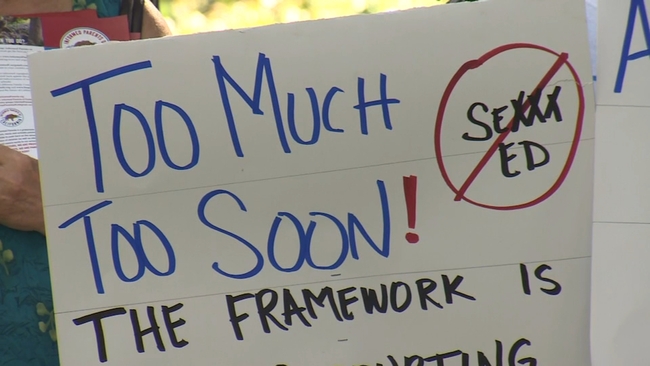 Too Much
Too Soon!
SEXXX
ED
THE FRAMEWORK IS